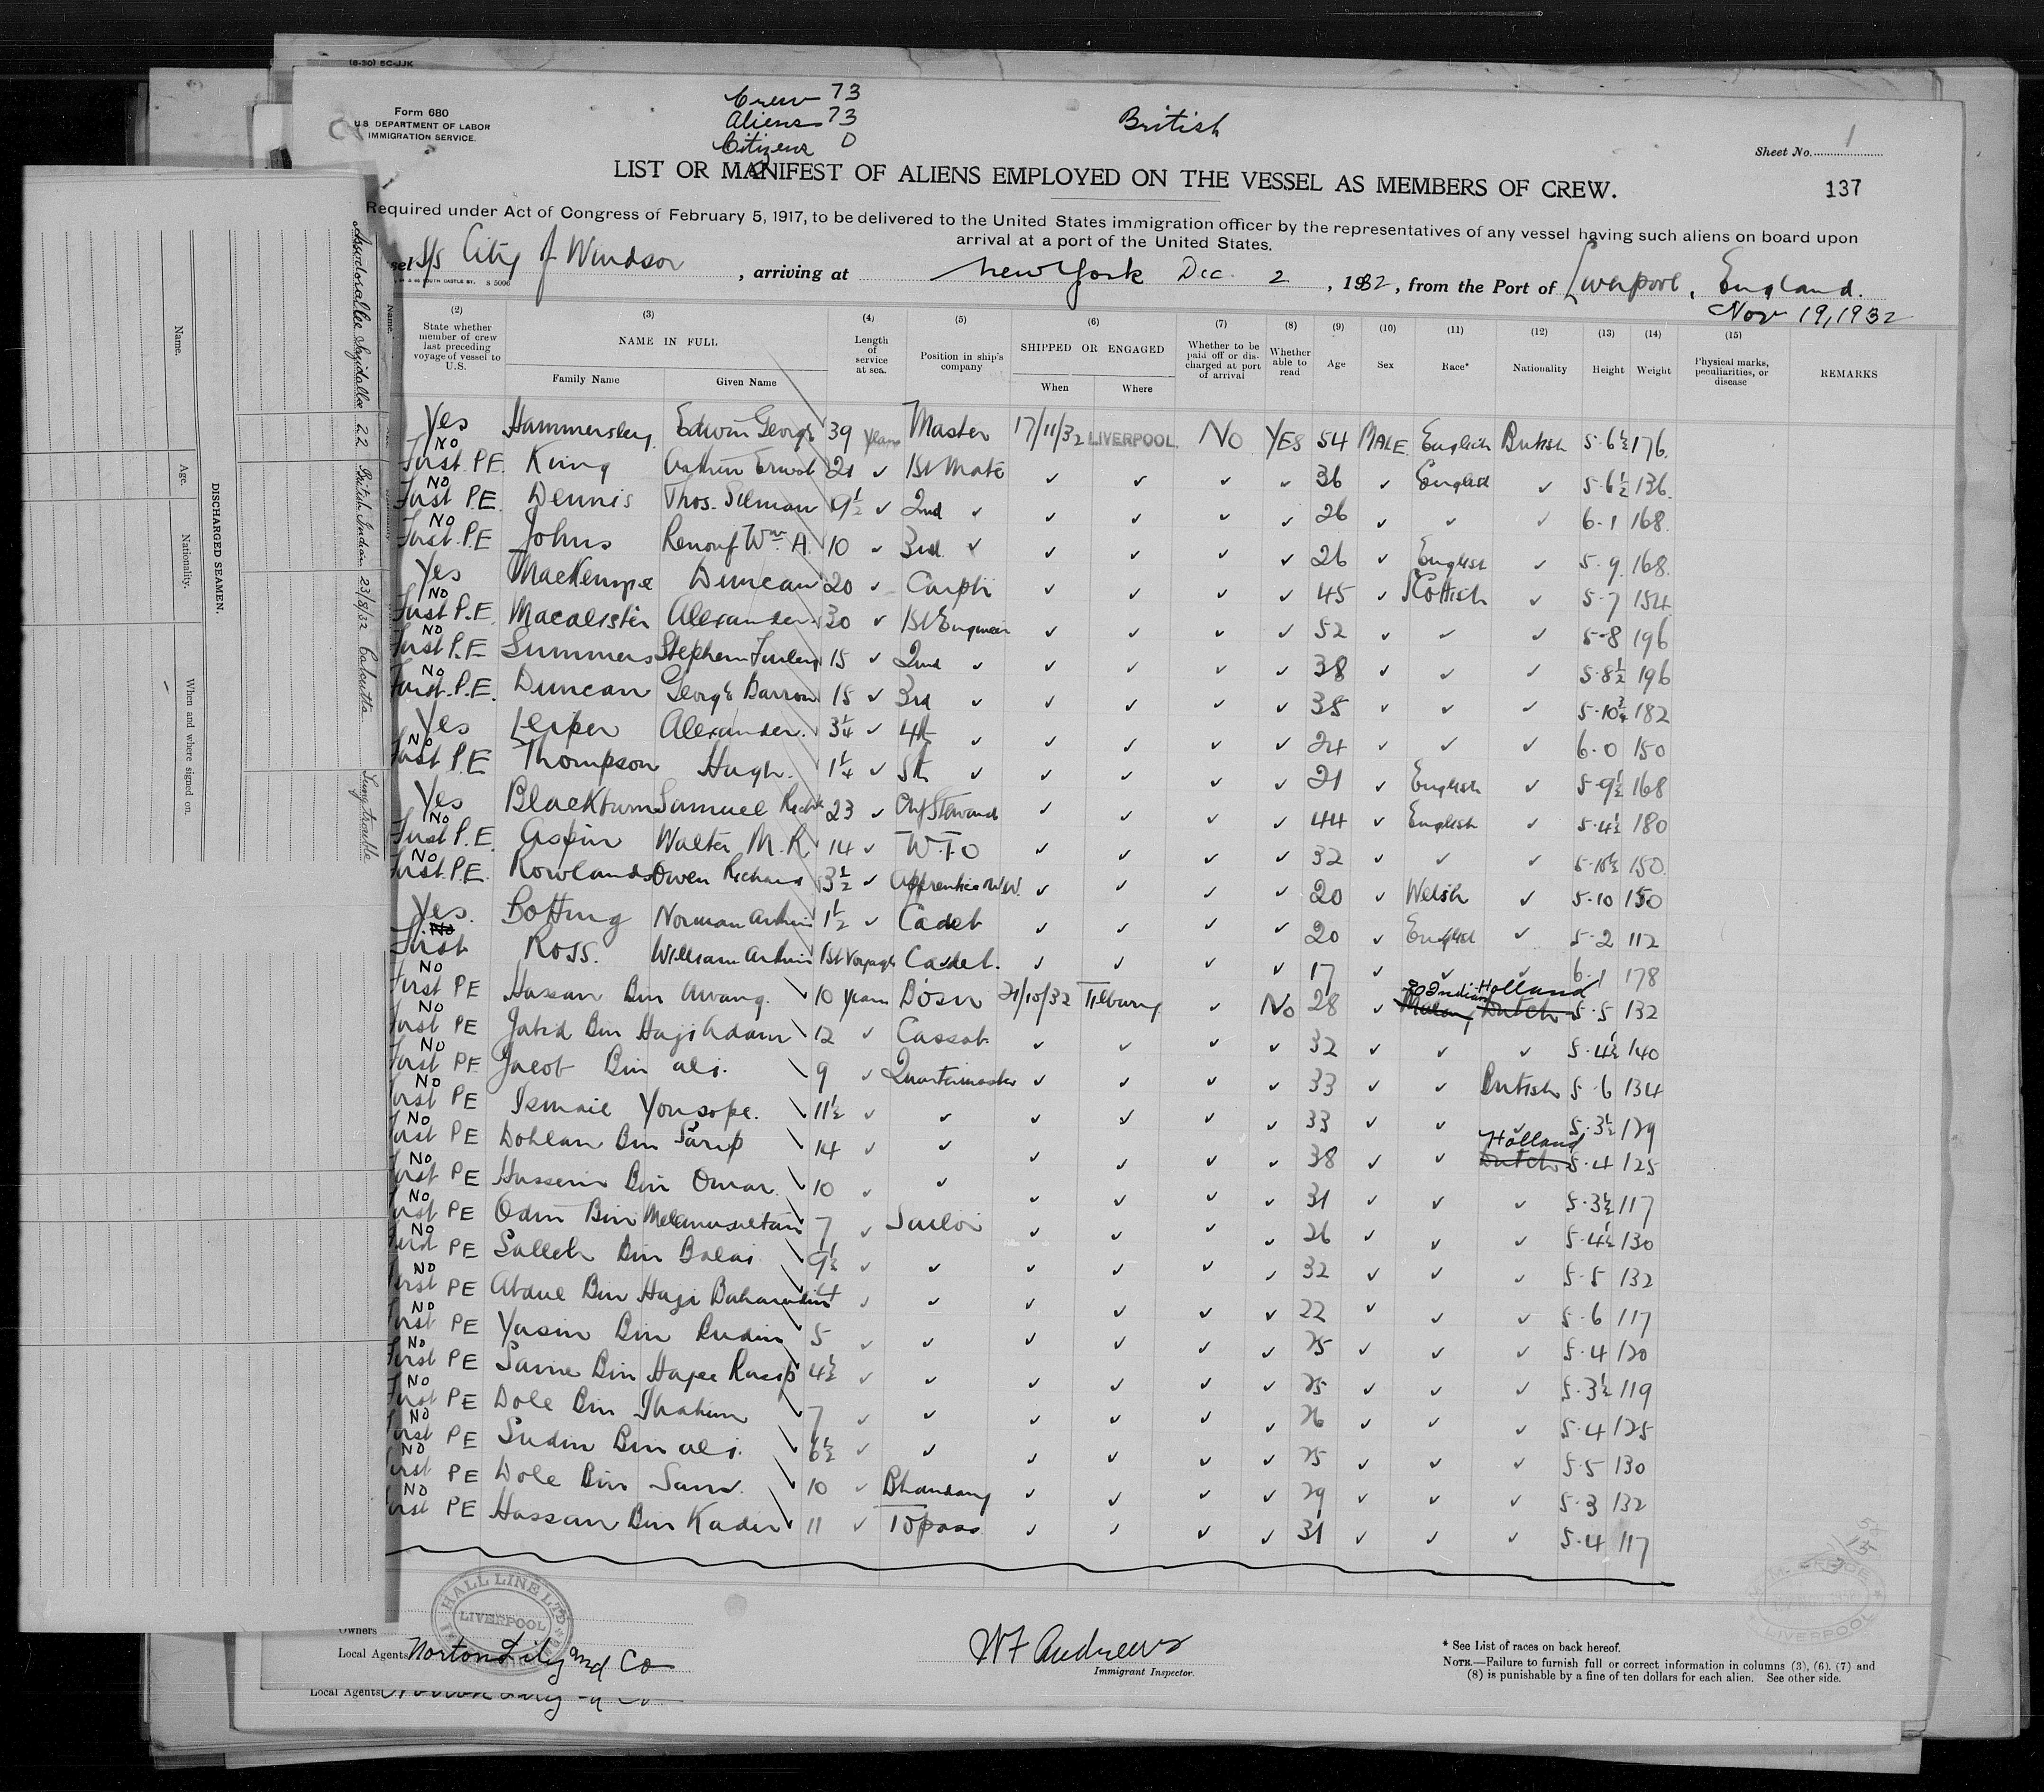 (8-30) 5C-JJK
Form 680
U.S. DEPARTMENT OF LABOR
IMMIGRATION SERVICE.
Crew 73
Aliens 73
Citizens 0
British
Sheet No. 1
LIST OR MANIFEST OF ALIENS EMPLOYED ON THE VESSEL AS MEMBERS OF CREW.
137
Required under Act of Congress of February 5, 1917, to be delivered to the United States immigration officer by the representatives of any vessel having such aliens on board upon
arrival at a port of the United States.
sel S/S City of Windsor, arriving at New York Dec. 2, 1932, from the Port of Liverpool, England.
Nov 19, 1932
(2) (3) (4) (5) (6) (7) (8) (9) (10) (11) (12) (13) (14) (15)
State whether member of crew last preceding voyage of vessel to U.S.
NAME IN FULL
Family Name
Given Name
Length of service at sea.
Position in ship's company
SHIPPED OR ENGAGED
When
Where
Whether to be paid off or discharged at port of arrival
Whether able to read
Age
Sex
Race*
Nationality
Height
Weight
Physical marks, peculiarities, or disease
REMARKS
Yes Hammersley Edwin George 39 years Master 17/11/32 LIVERPOOL. NO YES 54 MALE English British 5-6½ 176.
No First P.E. King Arthur Ernest 21 ✓ 1st Mate ✓ ✓ ✓ ✓ 36 ✓ English ✓ 5-6½ 136.
No First P.E. Dennis Thos. Selman 9½ ✓ 2nd ✓ ✓ ✓ ✓ ✓ 26 ✓ ✓ ✓ 6-1 168.
No First P.E Johns Renouf Wm. A. 10 ✓ 3rd ✓ ✓ ✓ ✓ ✓ 26 ✓ English ✓ 5-9 168.
Yes Duncan 20 ✓ Carptr ✓ ✓ ✓ ✓ 45 ✓ Scottish ✓ 5-7 154
No First P.E. Macalister Alexander 30 ✓ 1st Engineer ✓ ✓ ✓ ✓ 52 ✓ ✓ ✓ 5-8 196
No First P.E Summers Stephen 15 ✓ 2nd ✓ ✓ ✓ ✓ ✓ 38 ✓ ✓ ✓ 5-8½ 196
No First P.E. Duncan George Barron 15 ✓ 3rd ✓ ✓ ✓ ✓ ✓ 35 ✓ ✓ ✓ 5-10¾ 182
Yes Leiper Alexander. 3¼ ✓ 4th ✓ ✓ ✓ ✓ ✓ 24 ✓ ✓ ✓ 6-0 150
No First P.E Thompson Hugh. 1¼ ✓ 5th ✓ ✓ ✓ ✓ ✓ 21 ✓ English ✓ 5-9½ 168
Yes Blackburn Samuel 23 ✓ Chf Steward ✓ ✓ ✓ ✓ 44 ✓ English ✓ 5-4½ 180
No First P.E. Aspin Walter M. R. 14 ✓ W.T.O ✓ ✓ ✓ ✓ 32 ✓ ✓ ✓ 5-10½ 150.
No First P.E. Rowlands Owen Richard 3½ ✓ Apprentice ✓ ✓ ✓ ✓ 20 ✓ Welsh ✓ 5-10 150
Yes. Botting Norman Arthur 1½ ✓ Cadet ✓ ✓ ✓ ✓ 20 ✓ English ✓ 5-2 112
No First Ross. William Arthur 1st Voyage Cadet. ✓ ✓ ✓ ✓ 17 ✓ ✓ ✓ 6-1 178
No First PE Hassan Bin Awang. 10 years Bosn 21/10/32 Tilbury ✓ No 28 ✓ Malay Dutch Holland 5-5 132
No First PE Jabid Bin Haji Adam 12 ✓ Cassab ✓ ✓ ✓ ✓ 32 ✓ ✓ ✓ 5-4½ 140
No First PE Jacob Bin Ali. 9 ✓ Quartermaster ✓ ✓ ✓ ✓ 33 ✓ ✓ British 5-6 134
No First PE Ismail Yousope. 11½ ✓ ✓ ✓ ✓ ✓ ✓ 33 ✓ ✓ ✓ 5-3½ 129
No First PE Dohlan Bin Sarip 14 ✓ ✓ ✓ ✓ ✓ ✓ 38 ✓ ✓ Dutch Holland 5-4 125
No First PE Hussein Bin Omar 10 ✓ ✓ ✓ ✓ ✓ ✓ 31 ✓ ✓ ✓ 5-3½ 117
No First PE Odin Bin 7 ✓ Sailor ✓ ✓ ✓ ✓ 26 ✓ ✓ ✓ 5-4½ 130
No First PE Salleh Bin Balai 9½ ✓ ✓ ✓ ✓ ✓ ✓ 32 ✓ ✓ ✓ 5-5 132
No First PE Abdul Bin Haji ✓ ✓ ✓ ✓ ✓ ✓ 22 ✓ ✓ ✓ 5-6 117
No First PE Yasin Bin Rudin 5 ✓ ✓ ✓ ✓ ✓ ✓ 25 ✓ ✓ ✓ 5-4 120
No First PE Bin Hajee Rasip 4½ ✓ ✓ ✓ ✓ ✓ ✓ 25 ✓ ✓ ✓ 5-3½ 119
No First PE Dole Bin Ibrahim 7 ✓ ✓ ✓ ✓ ✓ ✓ 26 ✓ ✓ ✓ 5-4 125
No First PE Sudin Bin Ali. 6½ ✓ ✓ ✓ ✓ ✓ ✓ 25 ✓ ✓ ✓ 5-5 130
No First PE Dole Bin 10 ✓ Bhandary ✓ ✓ ✓ ✓ 29 ✓ ✓ ✓ 5-3 132
No First PE Hassan Bin Kader 11 ✓ Topass ✓ ✓ ✓ ✓ 31 ✓ ✓ ✓ 5-4 117
HALL LINE LTD
LIVERPOOL
Owners
Local Agents Norton Lilly and Co
Local Agents
W F Andrews
Immigrant Inspector.
* See List of races on back hereof.
NOTE.—Failure to furnish full or correct information in columns (3), (6), (7) and
(8) is punishable by a fine of ten dollars for each alien. See other side.
LIVERPOOL
DISCHARGED SEAMEN.
Name.
Age.
Nationality.
When and where signed on.
22 British Indian 23/8/32 Calcutta Lung trouble